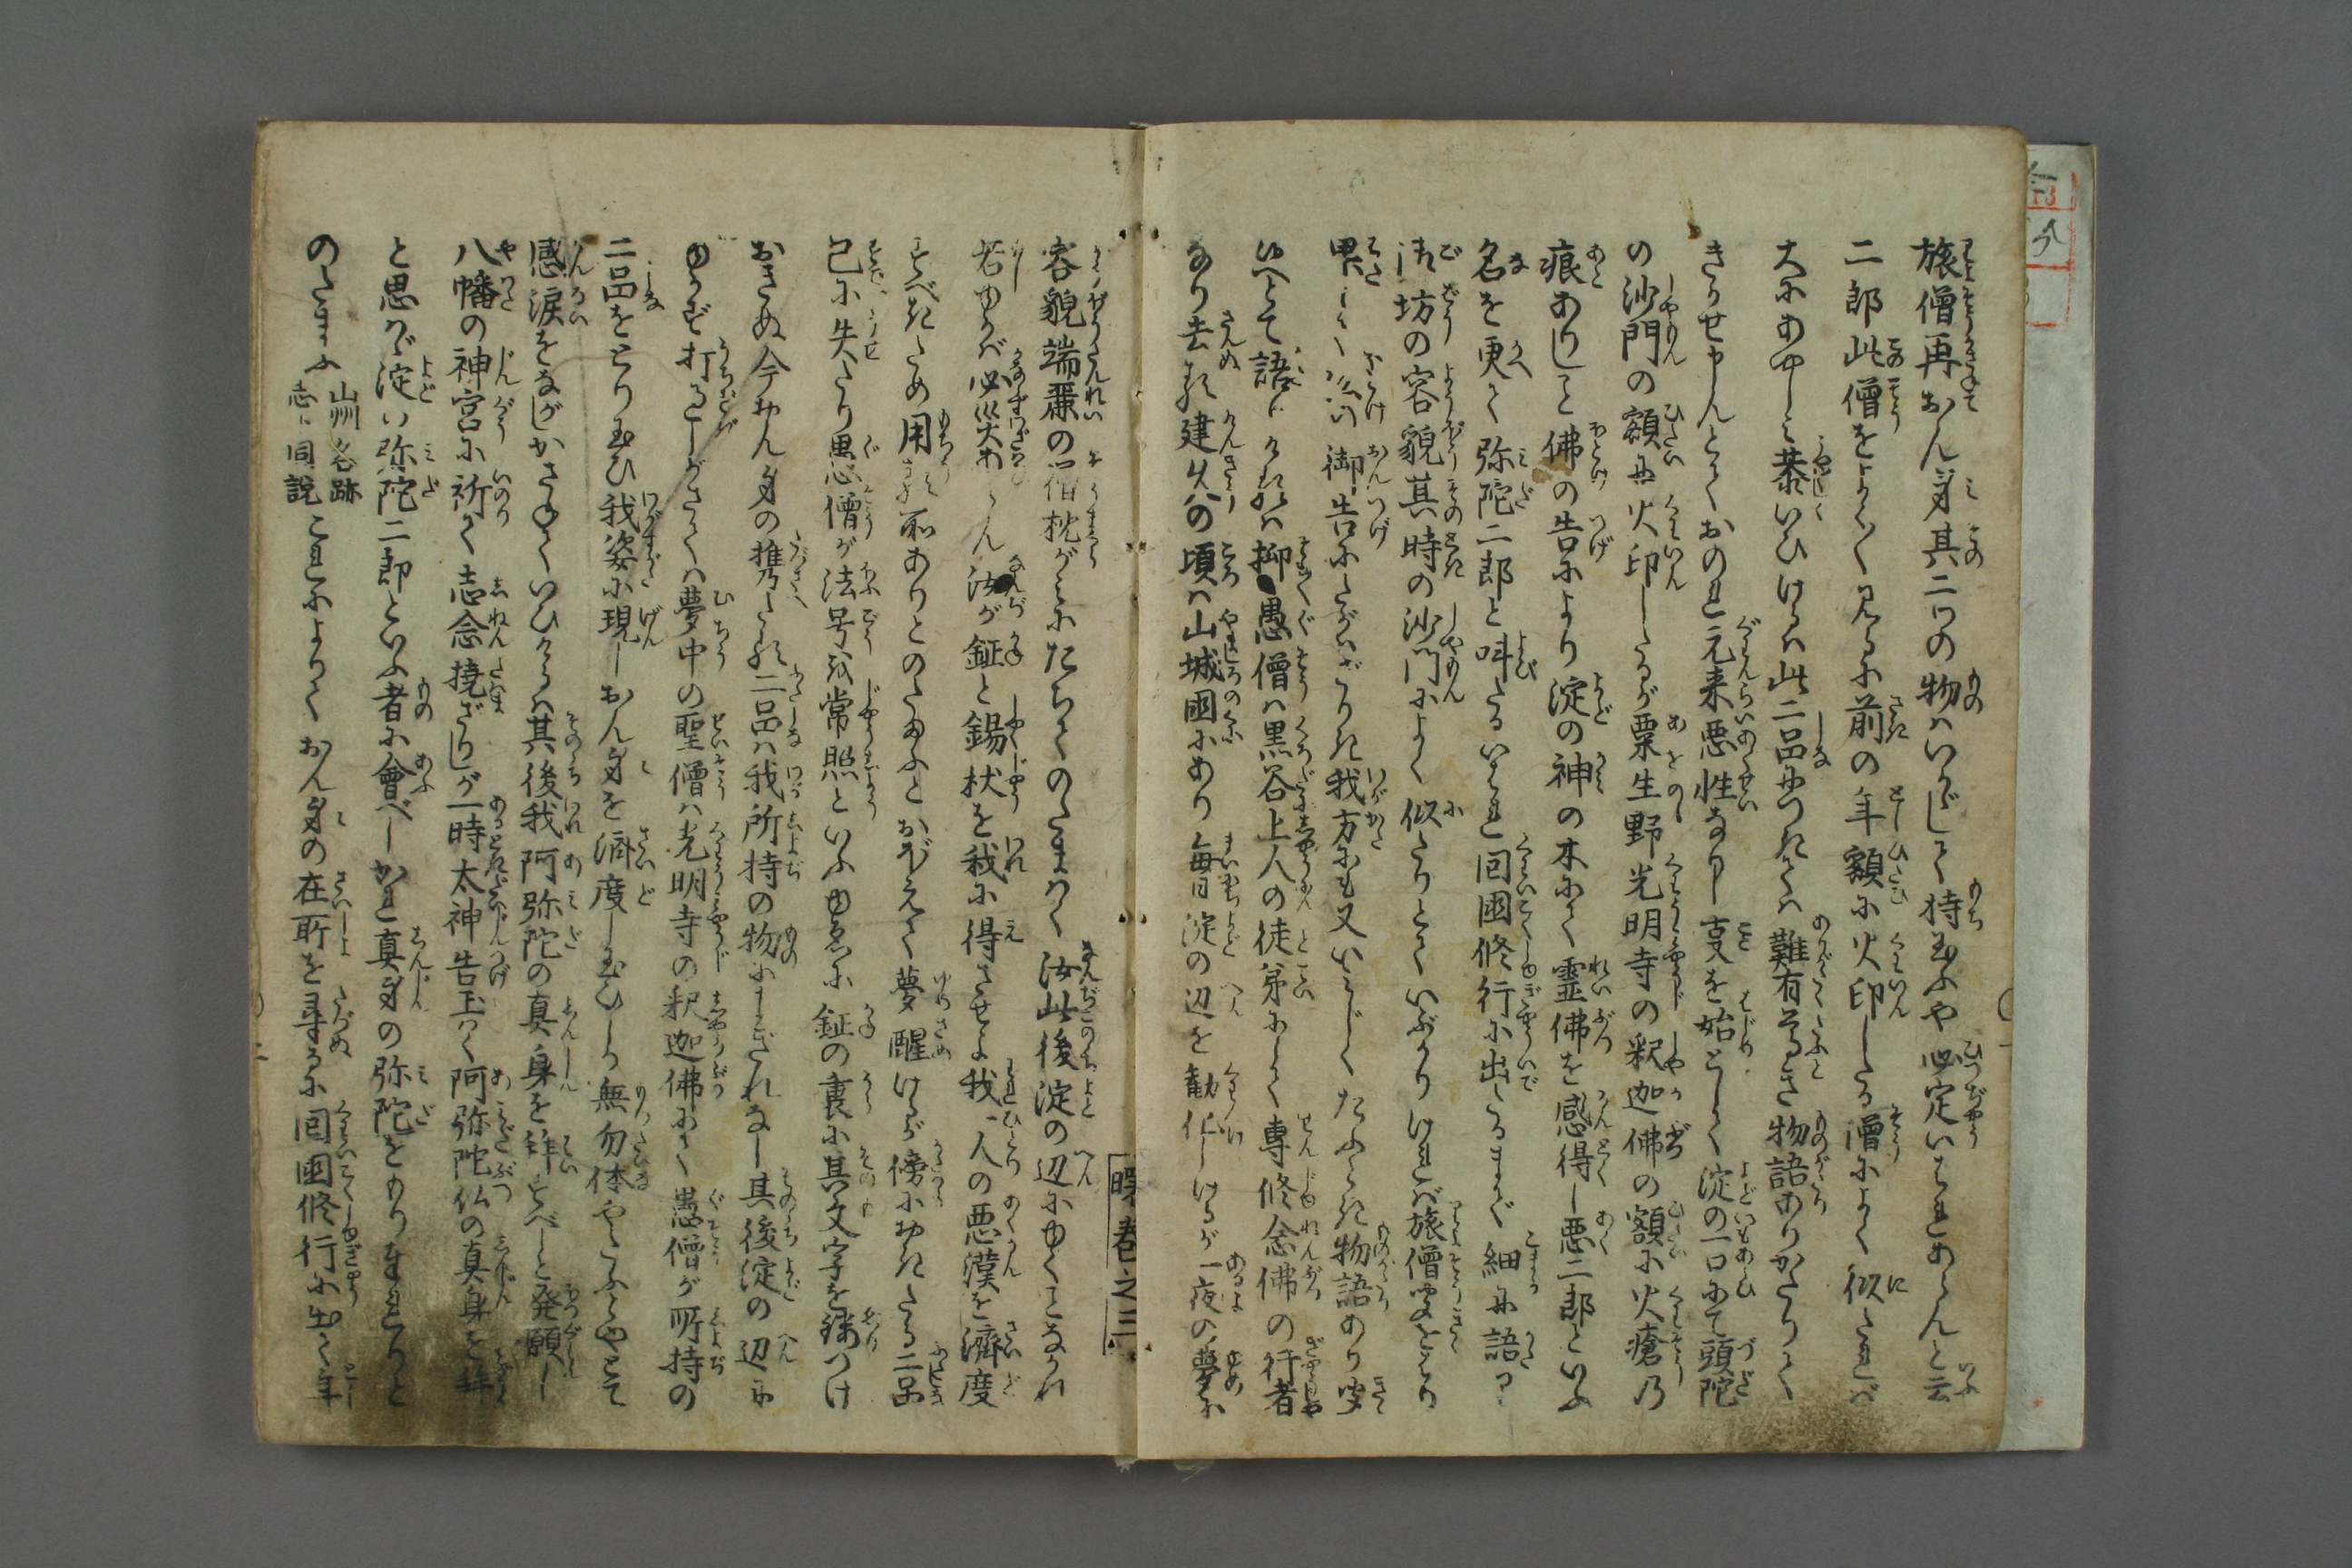 旅僧再おん身其二つの物はいかゞして持玉ふや必定いはれあらんと云
二郎此僧をよく〳〵見るに前の年額に火印したる僧によく似たれば
大にあやしみ恭いひけるは此二品につきては難有尊き物語ありかたりて
きかせ申んとておのれ元来悪性なりし事を始として淀の一口にて頭陀
の沙門の額に火印したるが粟生野光明寺の釈迦佛の額に火瘡の
痕ありしこと佛の告により淀の神の木にて霊佛を感得し悪二郎といふ
名を更て弥陀二郎と呼たるいはれ回國修行に出たるまで細に語り
御坊の容貌其時の沙門によく似たりとていぶかりければ旅僧聞をはり
果して佛の御告にたがはざりき我方にも又いみじくたふとき物語あり聞
給へとて語りけるは抑愚僧は黒谷上人の徒弟にして専修念佛の行者
なり去る建久の頃は山城國にあり毎日淀の辺を勧化しけるが一夜の夢に
暁 巻之三
容貌端麗の僧枕がみにたちてのたまはく汝此後淀の辺にゆくことなかれ
若ゆかば必災あらん汝が鉦と錫杖を我に得させよ我一人の悪漢を済度
すべきため用る所ありとのたまふとおぼえて夢醒けるが傍におきたる二品
已に失たり愚僧が法号を常照といふゆゑに鉦の裏に其文字を鋳つけ
おきぬ今おん身の携たる二品は我所持の物にまぎれなし其後淀の辺に
ゆかず打過しがさては夢中の聖僧は光明寺の釈迦佛にて愚僧が所持の
二品をとり玉ひ我姿に現しおん身を済度し玉ひしか無勿体やたふとやとて
感涙をながしかさねていひけるは其後我阿弥陀の真身を拝すべしと発願し
八幡の神宮に祈て志念撓ざりしが一時太神告玉はく阿弥陀仏の真身を拝
と思はゞ淀の弥陀二郎といふ者に會べしかれ真身の弥陀をありまれりと
のたまふ 山州名跡志ニ同説 これによりておん身の在所を尋るに回國修行に出て年